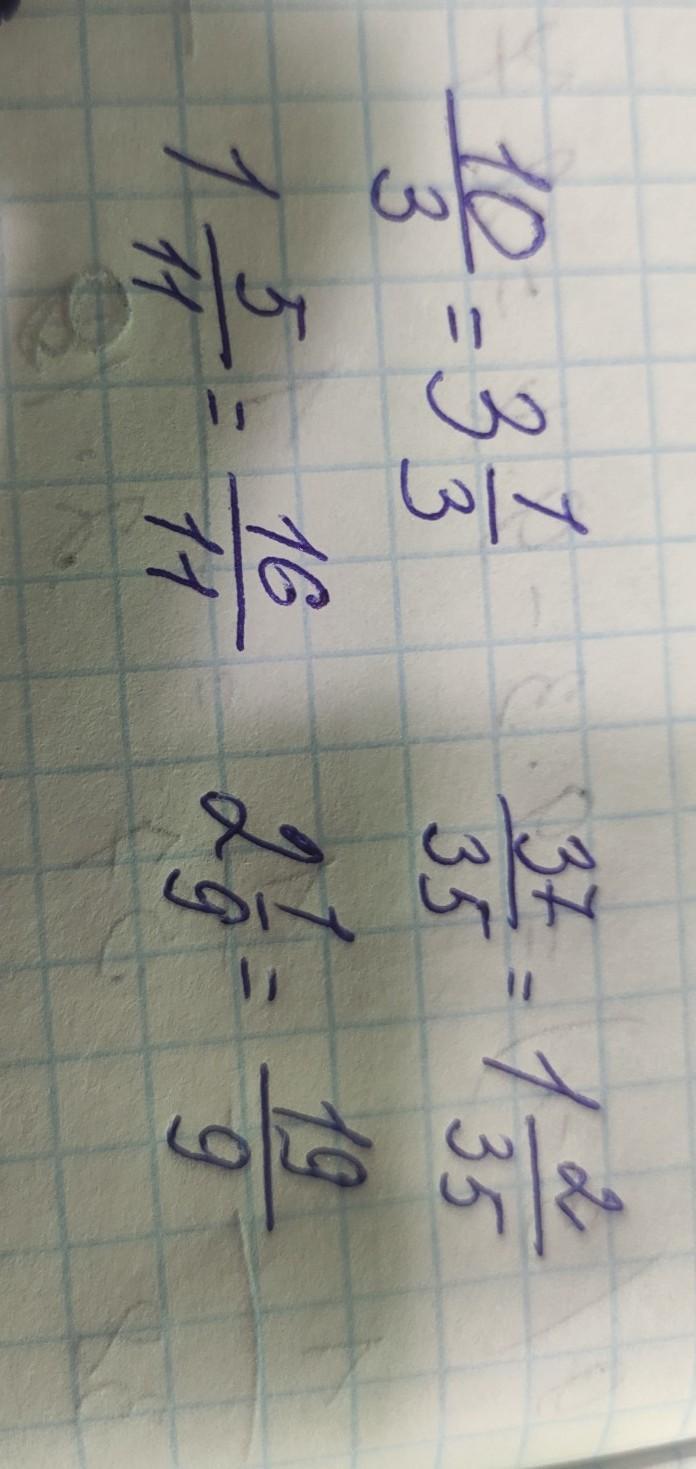 10/3 = 3 1/3    37/35 = 1 2/35
1 5/11 = 16/11    2 1/9 = 19/9